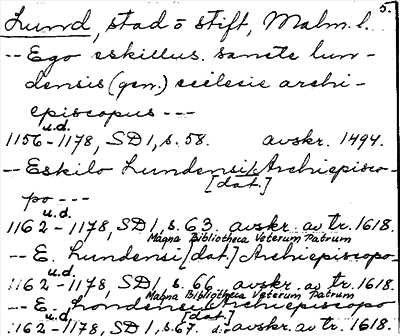 5.
Lund, stad o stift, Malm. l.
-- Ego eskillus. sancte lun-
densis (gen.) ecclesie archi-
episcopus ---
u.d.
1156-1178, SD 1, s. 58. avskr. 1494.
-- Eskilo Lundensi Archiepisco-
[dat.]
po ---
u.d.
1162-1178, SD 1, s. 63 avskr. av tr. 1618.
Magna Bibliotheca Veterum Patrum
-- E. Lundensi [dat.] Archiepiscopo-
u.d.
1162-1178, SD 1, s. 66 avskr. av tr. 1618.
Magna Bibliotheca Veterum Patrum
-- E. Londonensi Archiepiscopo
u.d. [dat.]
1162-1178, SD 1, s. 67. d:o avskr. av tr. 1618.